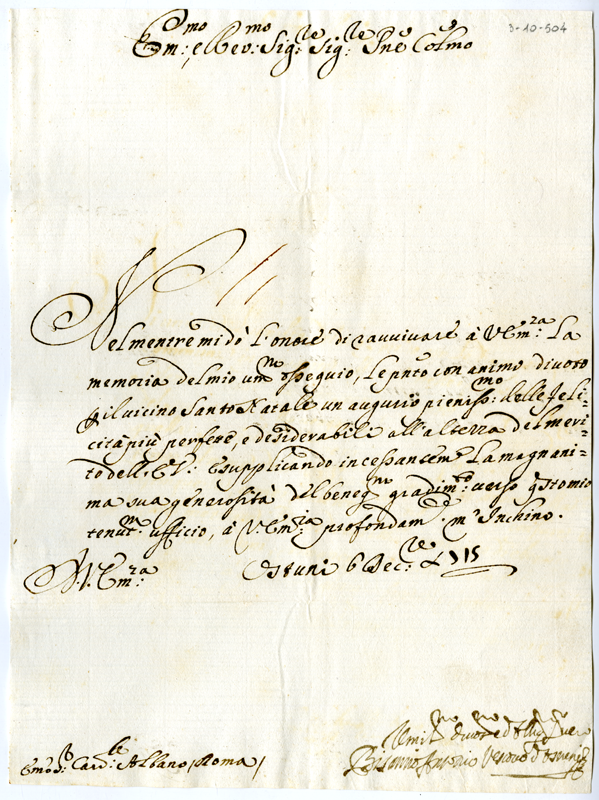 3-10-504
Em:mo e Rev:mo Sig:re Sig:re Pñe Colmo
Nel mentre mi dò l'onore di ravvivare à V. Em:za La
memoria del mio um:mo ossequio, Le pñto con animo divoto
p il vicino Santo Natale un augurio pieniss:mo delle feli=
cità più perfette, e desiderabili all'altezza del meri=
to dell'E. V: E supplicando incessantem:e La magnani=
ma sua generosità del benig:mo gradim:to verso q̃sto mio
tenu:mo ufficio, à V. Em:za profondam:e m'Inchino.
D. V. Em:za
Ostuni 6 Dec:re 1715
Emo S: Card:le Albano / Roma /
Umil:mo divot:mo ed obblig:mo Ser:re vero
Bisanzio Antonio Vescovo d'Ostuni